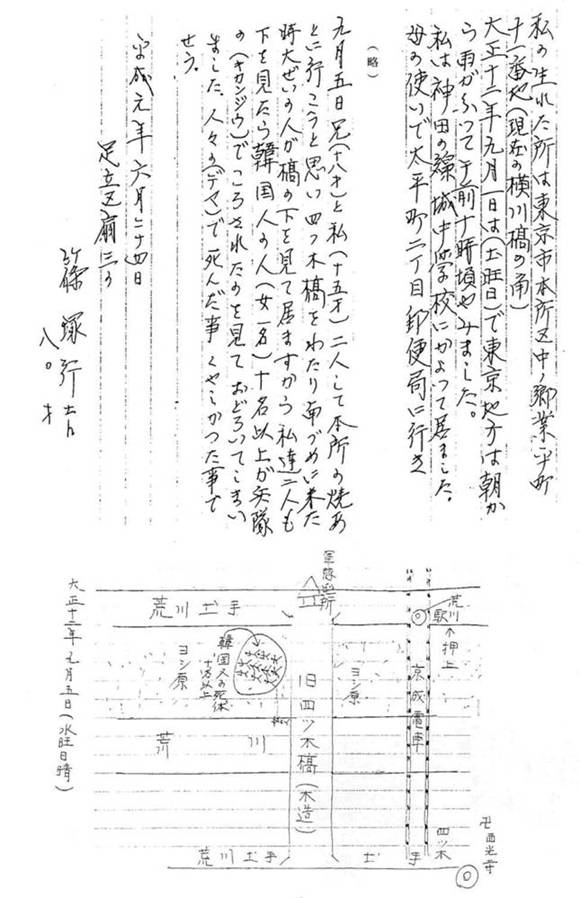 私の生れた所は東京市本所区中ノ郷業平町
十一番地(現在の横川橋の角)
大正十二年九月一日は(土旺日)で東京地方は朝か
ら雨がふって午前十時頃やみました。
私は神田の錦城中学校にかよって居ました。
母の使いで太平町二丁目郵便局に行き
(略)
九月五日兄(十八才)と私(十五才)二人して本所の焼あ
とに行こうと思い四ツ木橋をわたり南づめに来た
時大ぜいの人が橋の下を見て居ますから私達二人も
下を見たら韓国人の人(女一名)十名以上が兵隊
の(キカンジウ)でころされたのを見ておどろいてしまい
ました。人々の(デマ)で死んだ事くやしかった事で
せう。
平成元年六月二十四日
足立区扇二の
篠塚行吉
八〇才
荒川土手
荒川駅
押上
京成電車
ヨシ原
旧四ツ木橋(木造)
韓国人の死体
十名以上
ヨシ原
荒川
大正十二年九月五日(水旺日晴)
荒川土手
土手
四ツ木
卍西光寺